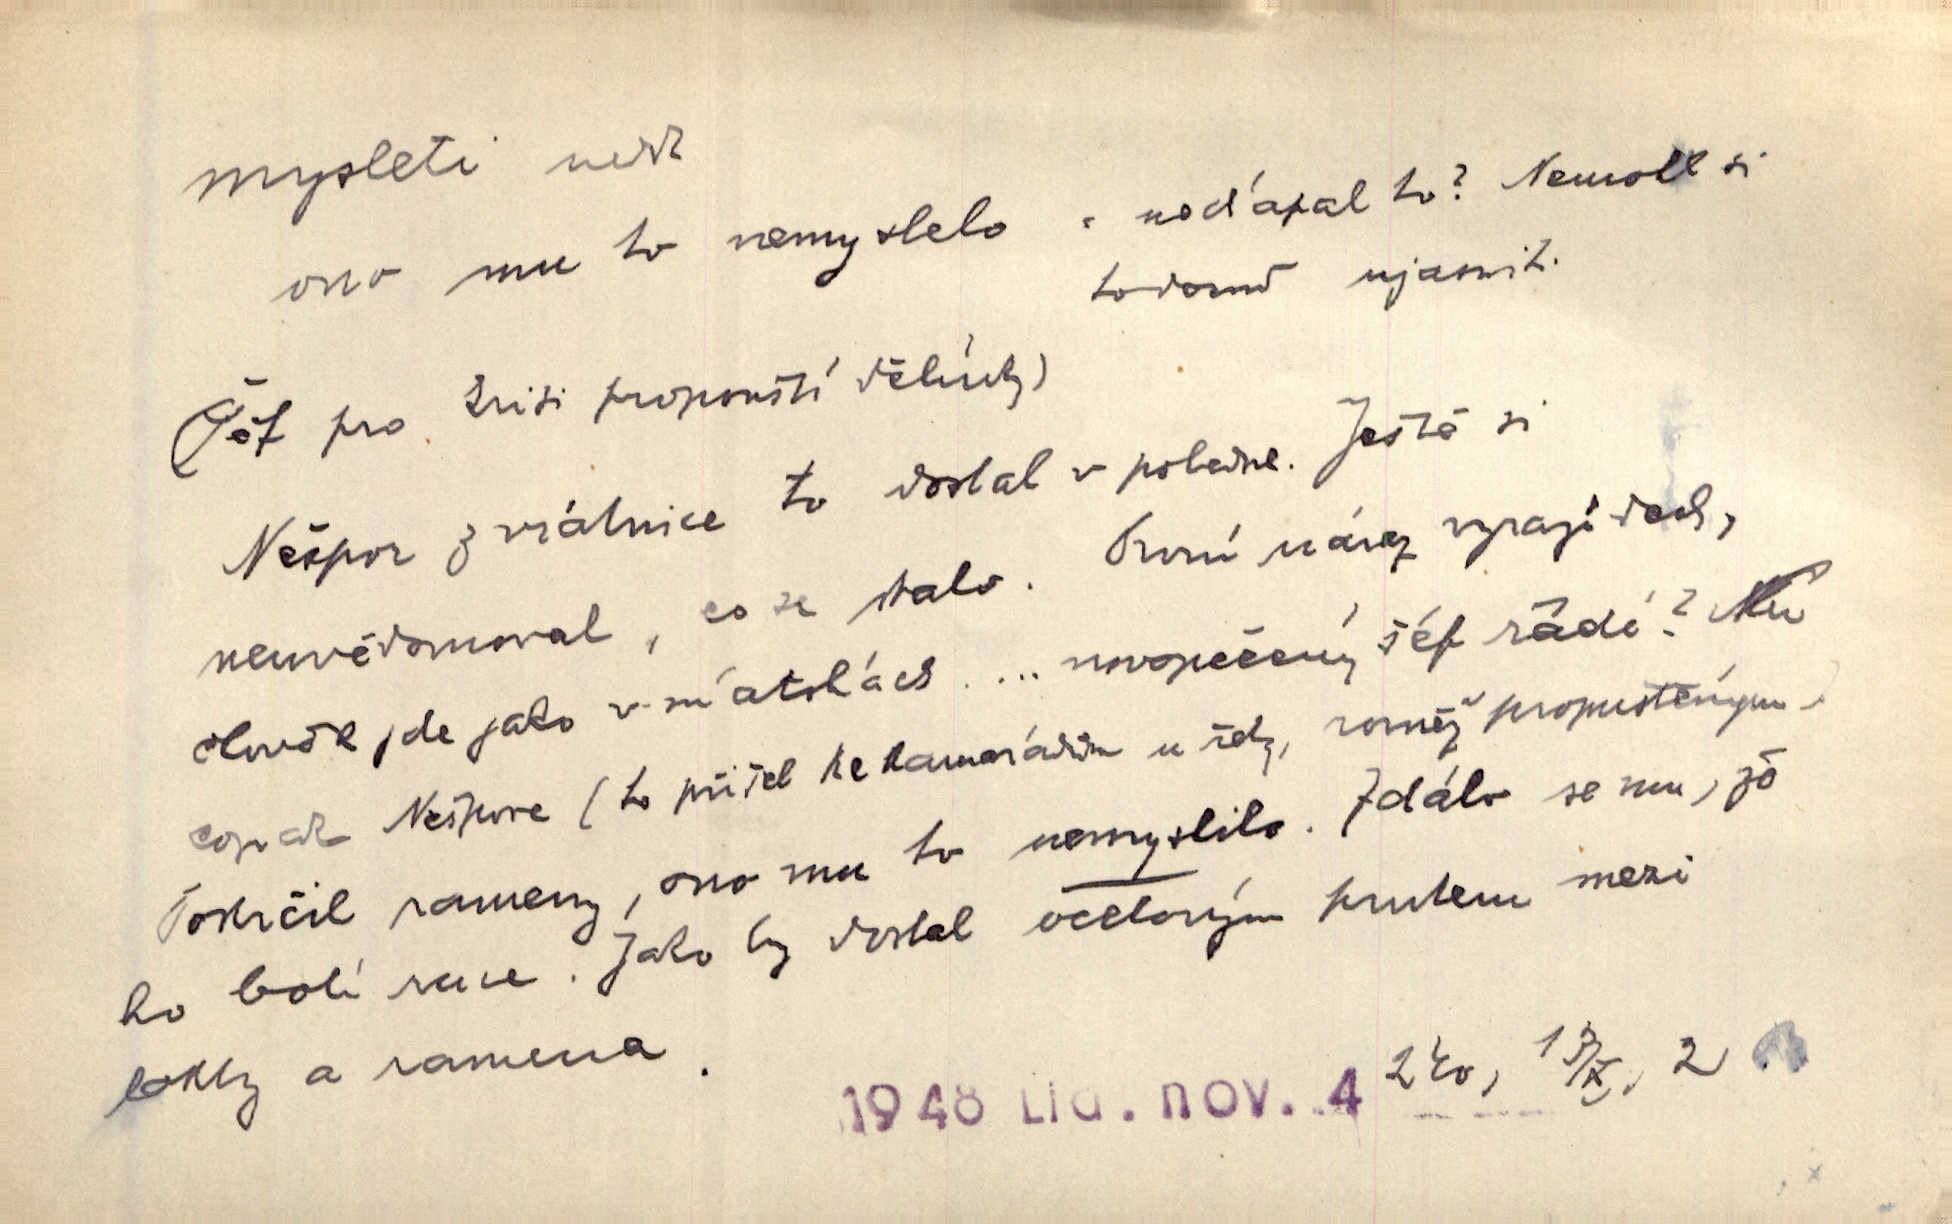 mysleti nedk
ono mu to nemyslelo = nechápal to? Nemohl si
to dosud ujasnit.
(Šéf pro krisi propouští dělníky)
Nešpor z vrátnice to dostal v poledne. Ještě si
neuvědomoval, co se stalo. První náraz vyrazí dech,
člověk jde jako v mátohách .... novopečený šéf řádí? Nu
copak Nešpore (to přišel ke kamarádům u zdi, rovněž propuštěným)
Pokrčil rameny, ono mu to nemyslilo. Zdálo se mu, že
ho bolí ruce. Jako by dostal ocelovým prutem mezi
lokty a ramena.
1948 Lid. nov. 4 240, 13/X, 2